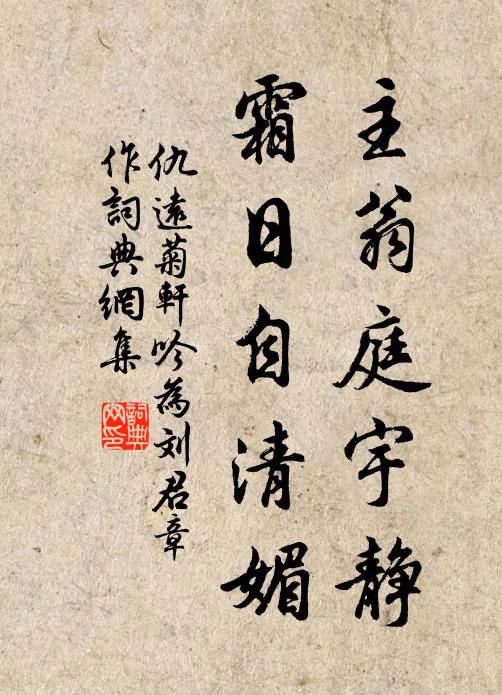 主翁庭宇静
霜日自清媚
仇遠菊軒吟為刘君章
作詞典網集
詞典
网印